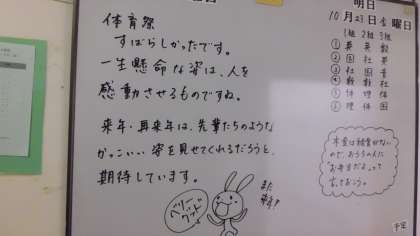 体育祭
すばらしかったです。
一生懸命な姿は、人を
感動させるものですね。
来年・再来年は、先輩たちのような
かっこいい姿を見せてくれるだろうと、
期待しています。
ベリーグッド
また
明日
10月23日金曜日
1組 2組 3組
① 英 英 数
② 社 国 英
③ 社 国 音
④ 数 数 社
⑤ 体 理 体
⑥ 理 体 国
本当は給食がない
ので、おうちの人に
"お弁当だよ"って
言っておこう。